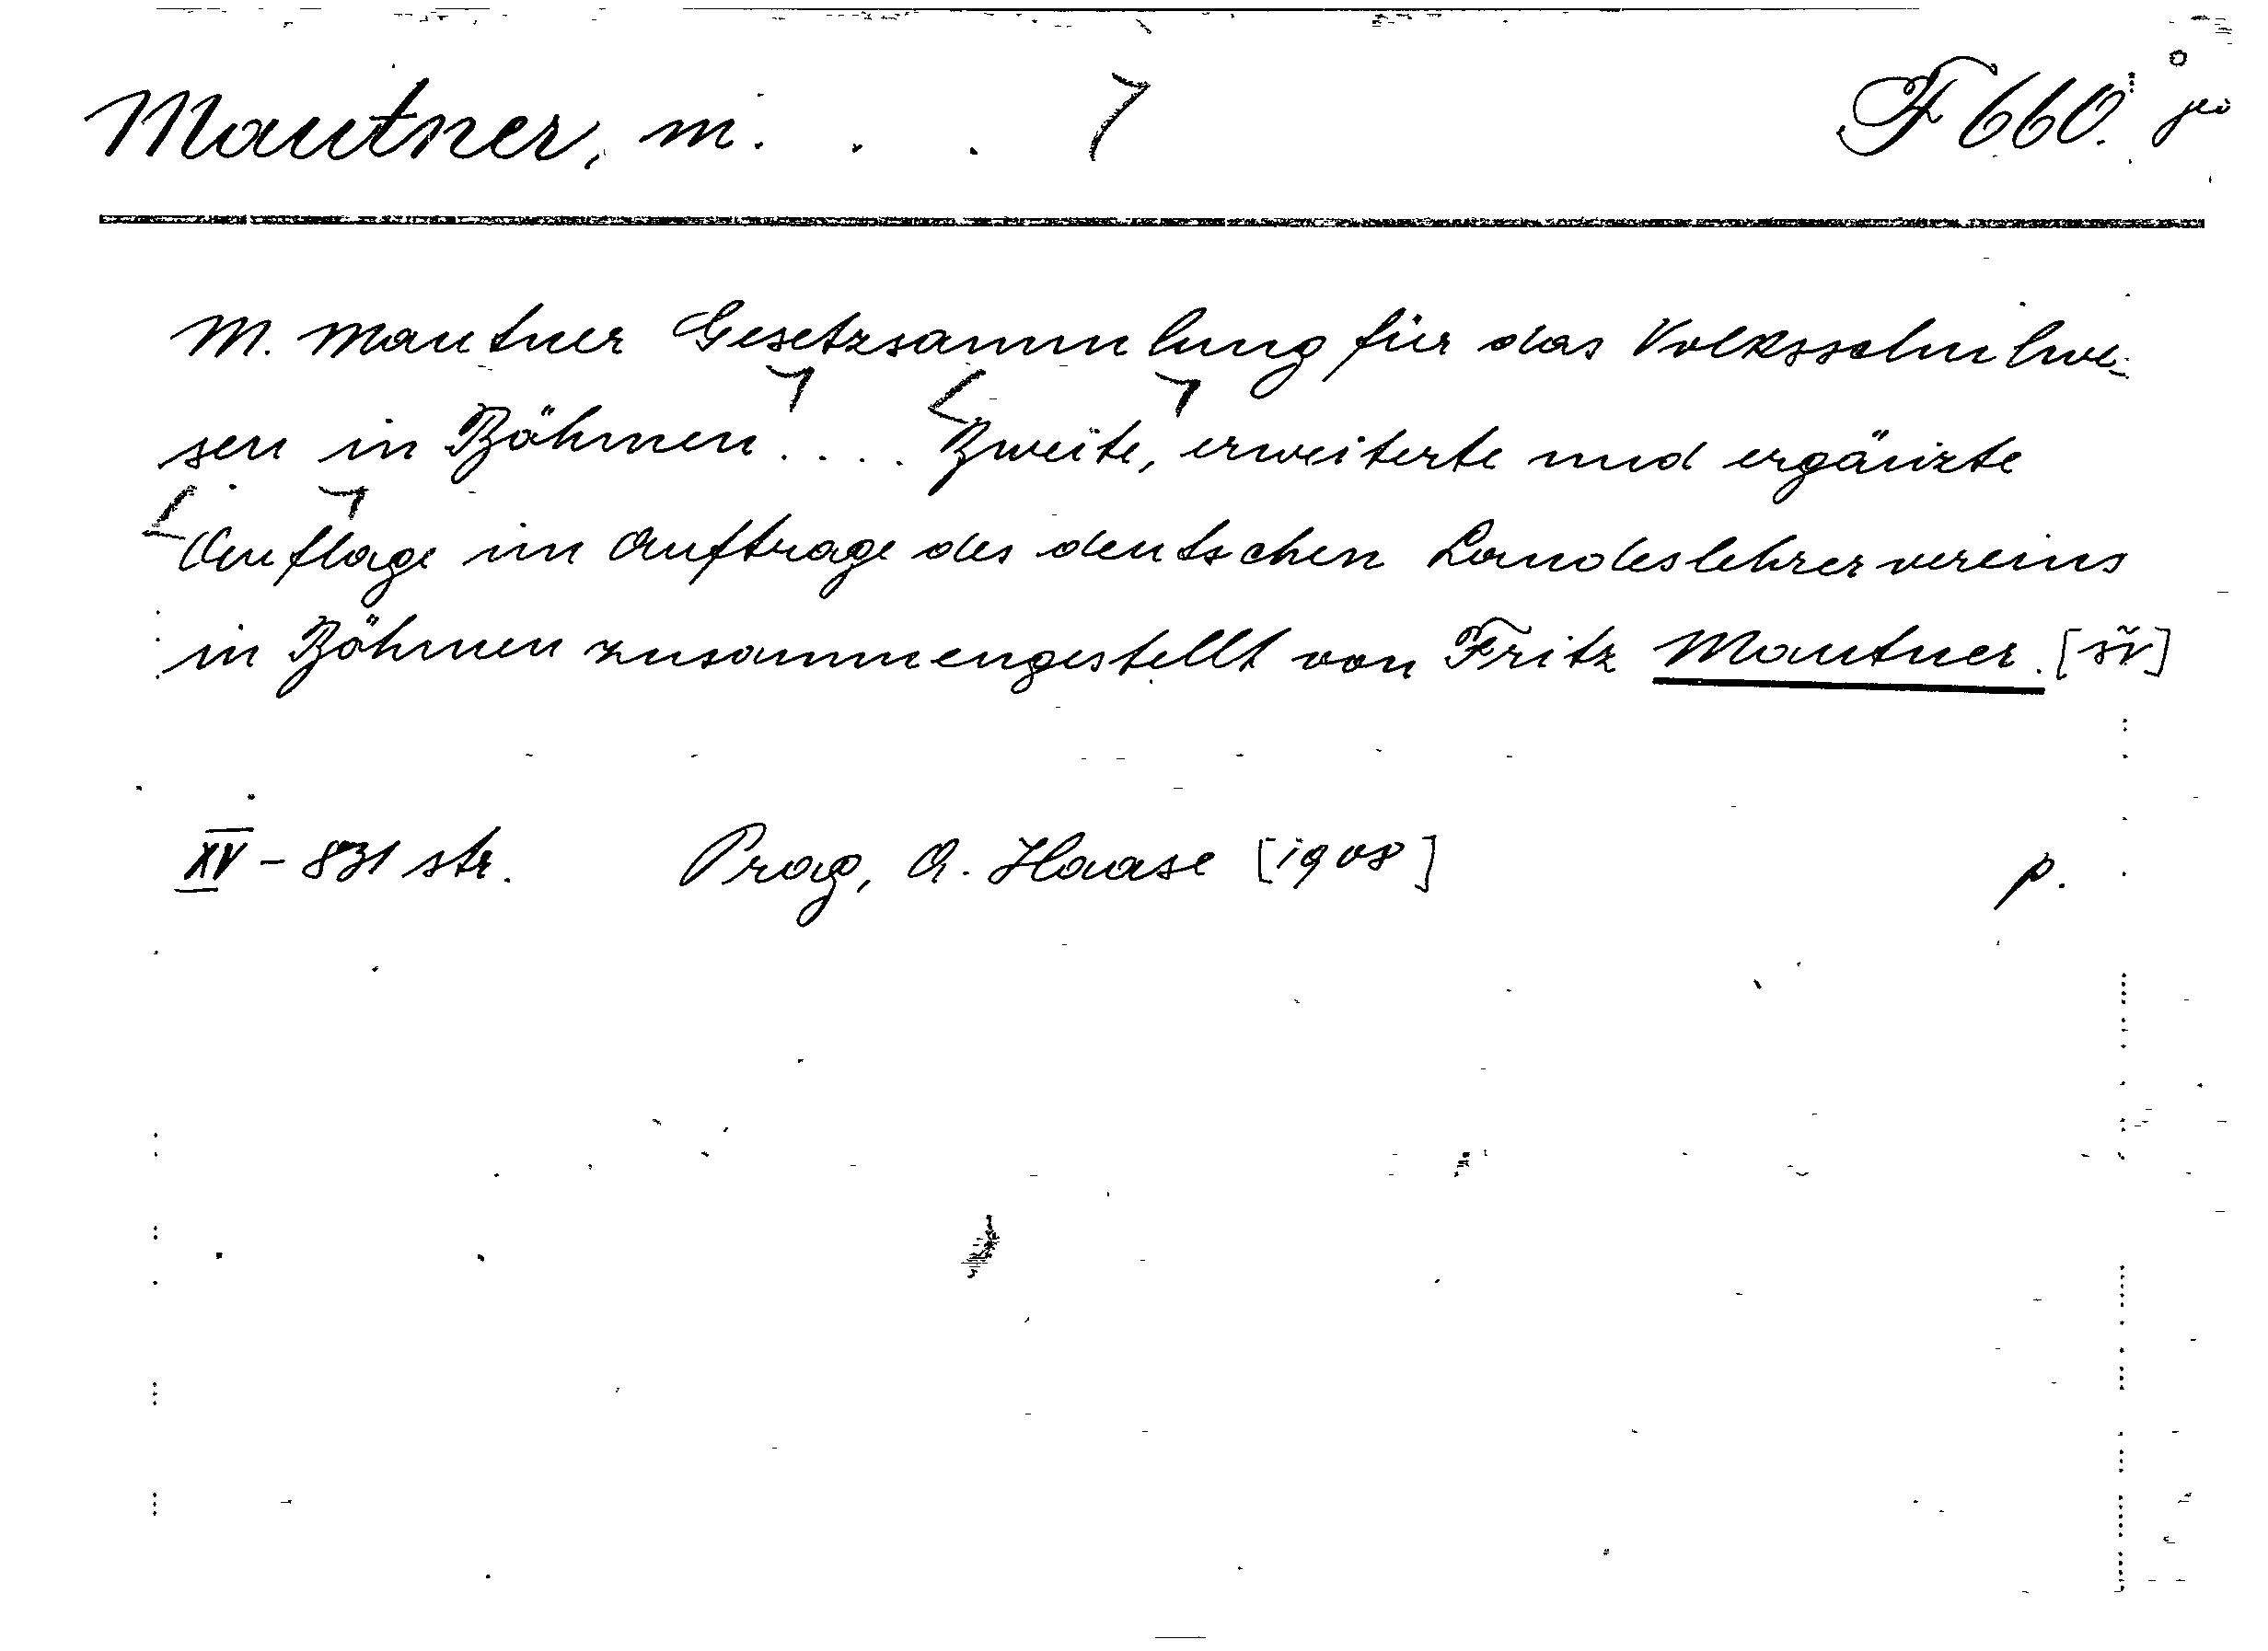 Mautner, M. . . F 660.
M. Mautner Gesetzsammlung für das Volksschulwe-
sen in Böhmen.... Zweite, erweiterte und ergänzte
Auflage im Auftrage des deutschen Landeslehrervereins
in Böhmen zusammengestellt von Fritz Mautner. [šv]
XV - 831 str. Prag, A. Haase [1908] p.